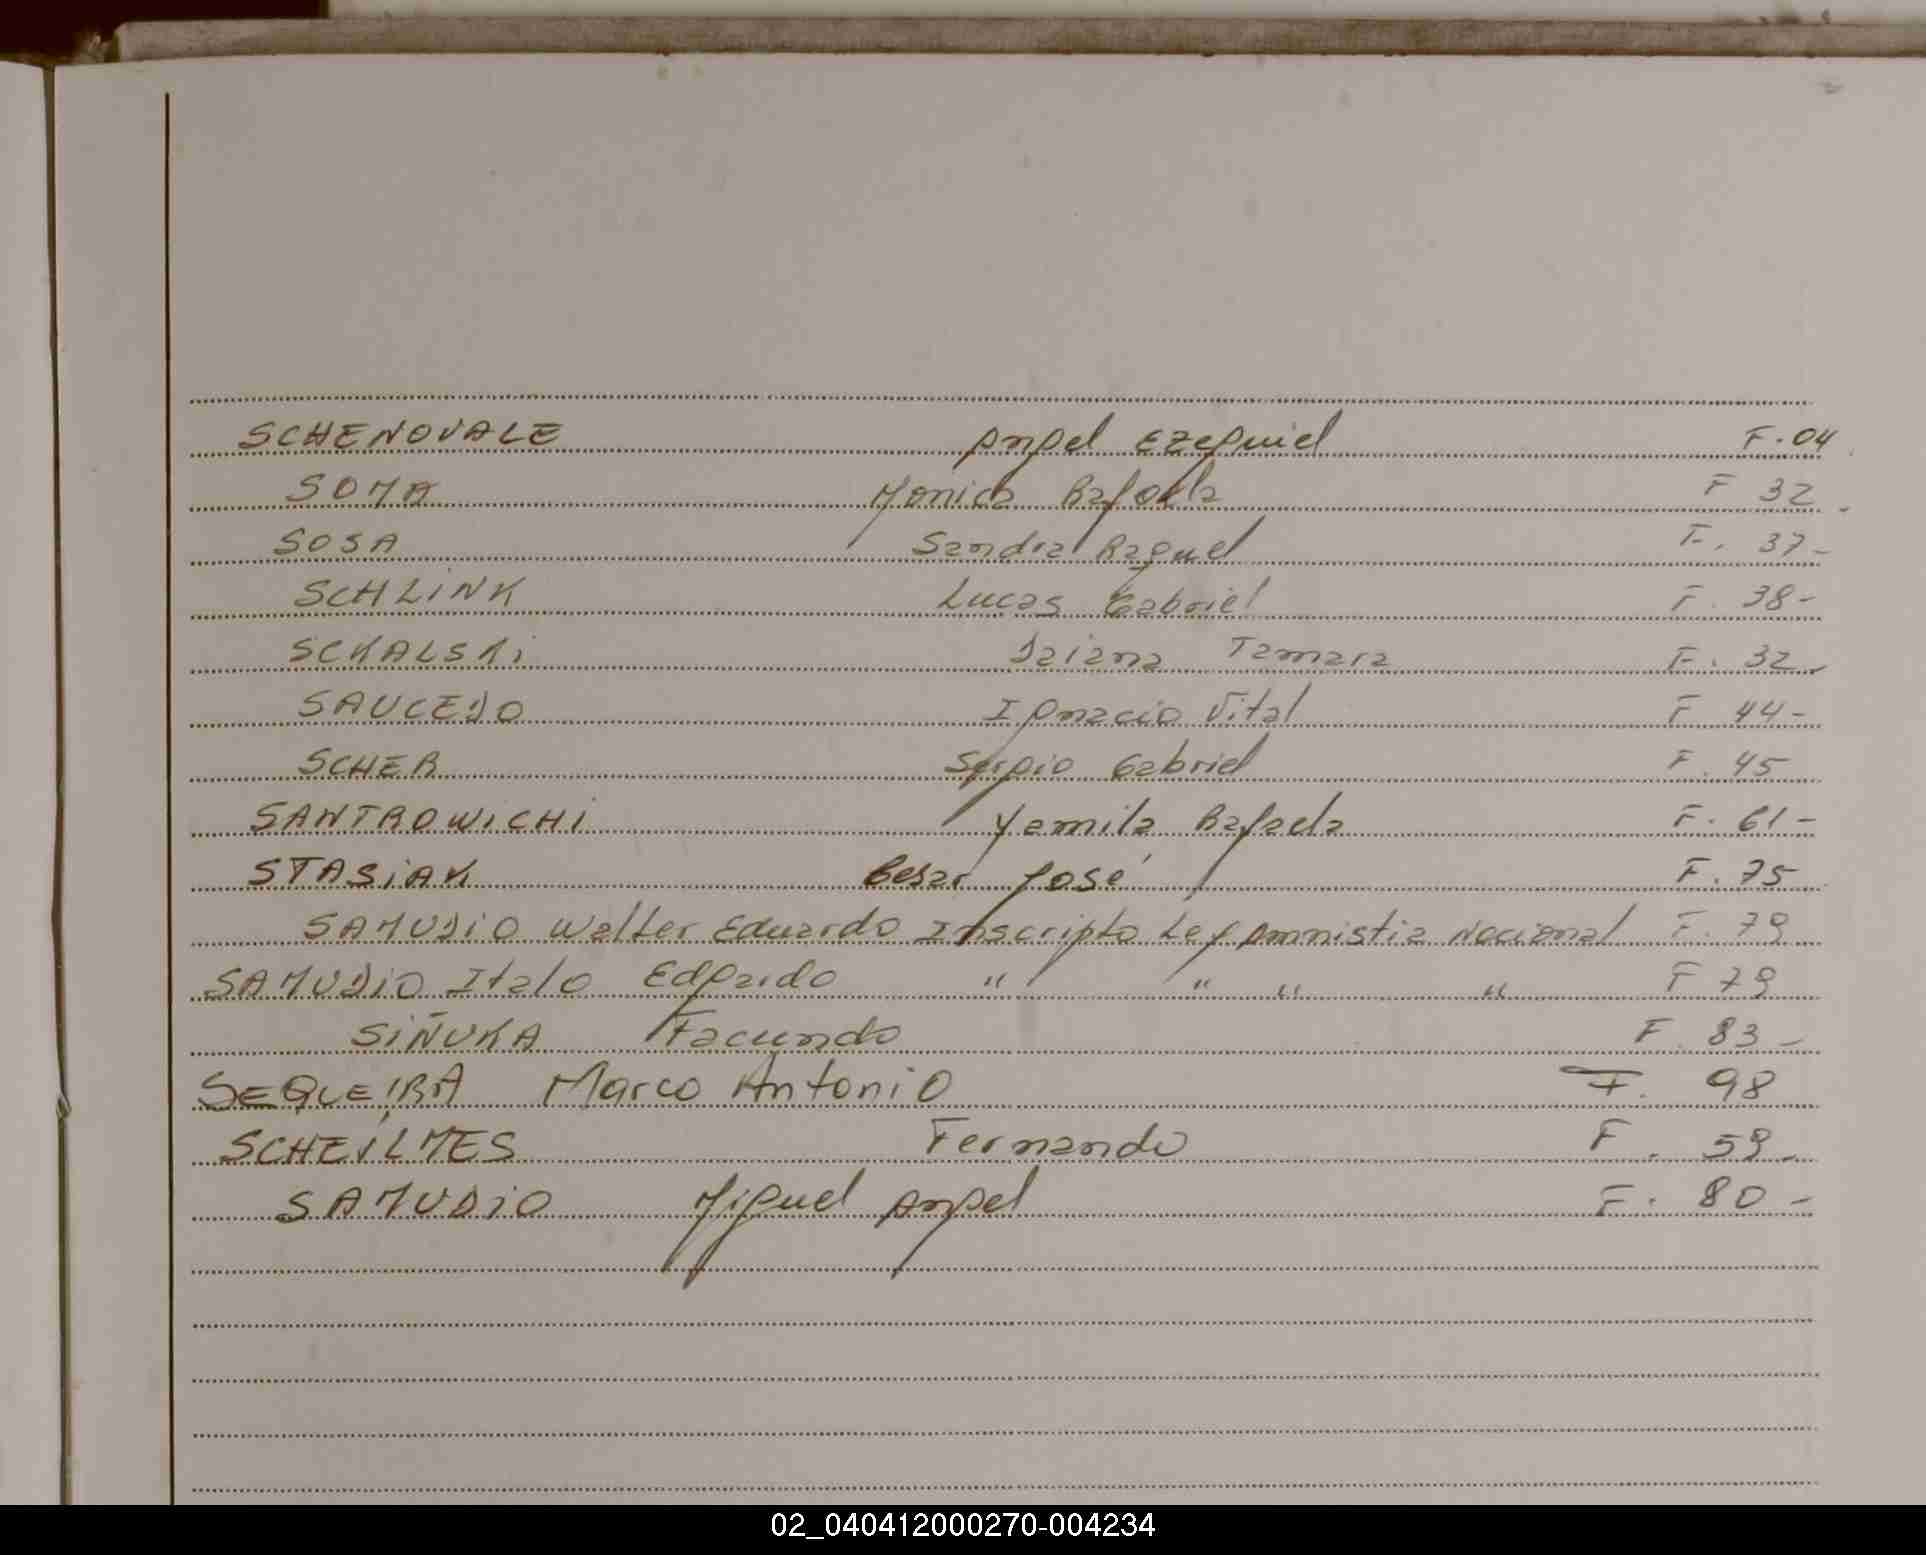 SCHENOVALE Angel Ezequiel F. 04
SOMA Monica Rafaela F 32
SOSA Sandra Raquel F. 37-
SCHLINK Lucas Gabriel F. 38-
SCKALSKI Daiana Tamara F. 32-
SAUCEDO Ignacio Vital F 44-
SCHER Sergio Gabriel F. 45
SANTROWICHI Yamila Rafaela F. 61-
STASIAK Cesar José F. 75
SAMUDIO Walter Eduardo Inscripto Ley Amnistia Nacional F. 79
SAMUDIO Italo Edgardo " " " " F 79
SIÑUKA Facundo F. 83-
SEQUEIRA Marco Antonio F. 98
SCHEILMES Fernando F. 59-
SAMUDIO Miguel Angel F. 80-
02_040412000270-004234